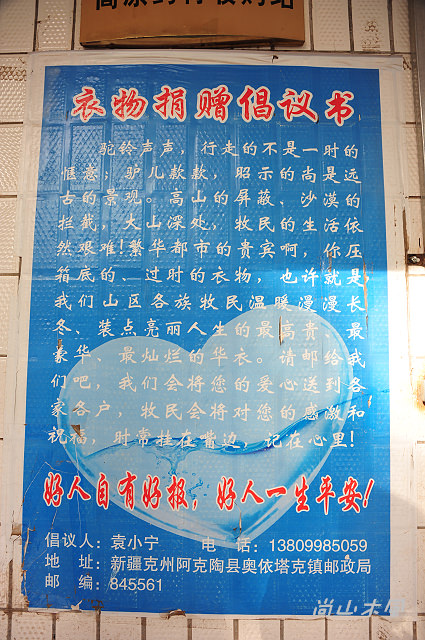 高原药材收购站
衣物捐赠倡议书
驼铃声声，行走的不是一时的
惬意；驴儿款款，昭示的尚是远
古的景观。高山的屏蔽、沙漠的
拦截，大山深处，牧民的生活依
然艰难！繁华都市的贵宾啊，你压
箱底的、过时的衣物，也许就是
我们山区各族牧民温暖漫漫长
冬、装点亮丽人生的最高贵、最
豪华、最灿烂的华衣。请邮给我
们吧，我们会将您的爱心送到各
家各户，牧民会将对您的感激和
祝福，时常挂在嘴边，记在心里！
好人自有好报，好人一生平安！
倡议人：袁小宁 电 话：13809985059
地 址：新疆克州阿克陶县奥依塔克镇邮政局
邮 编：845561
尚山木